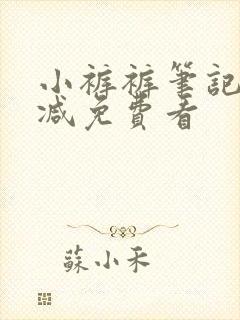 小裤裤筆記
减免費看
蘇小禾